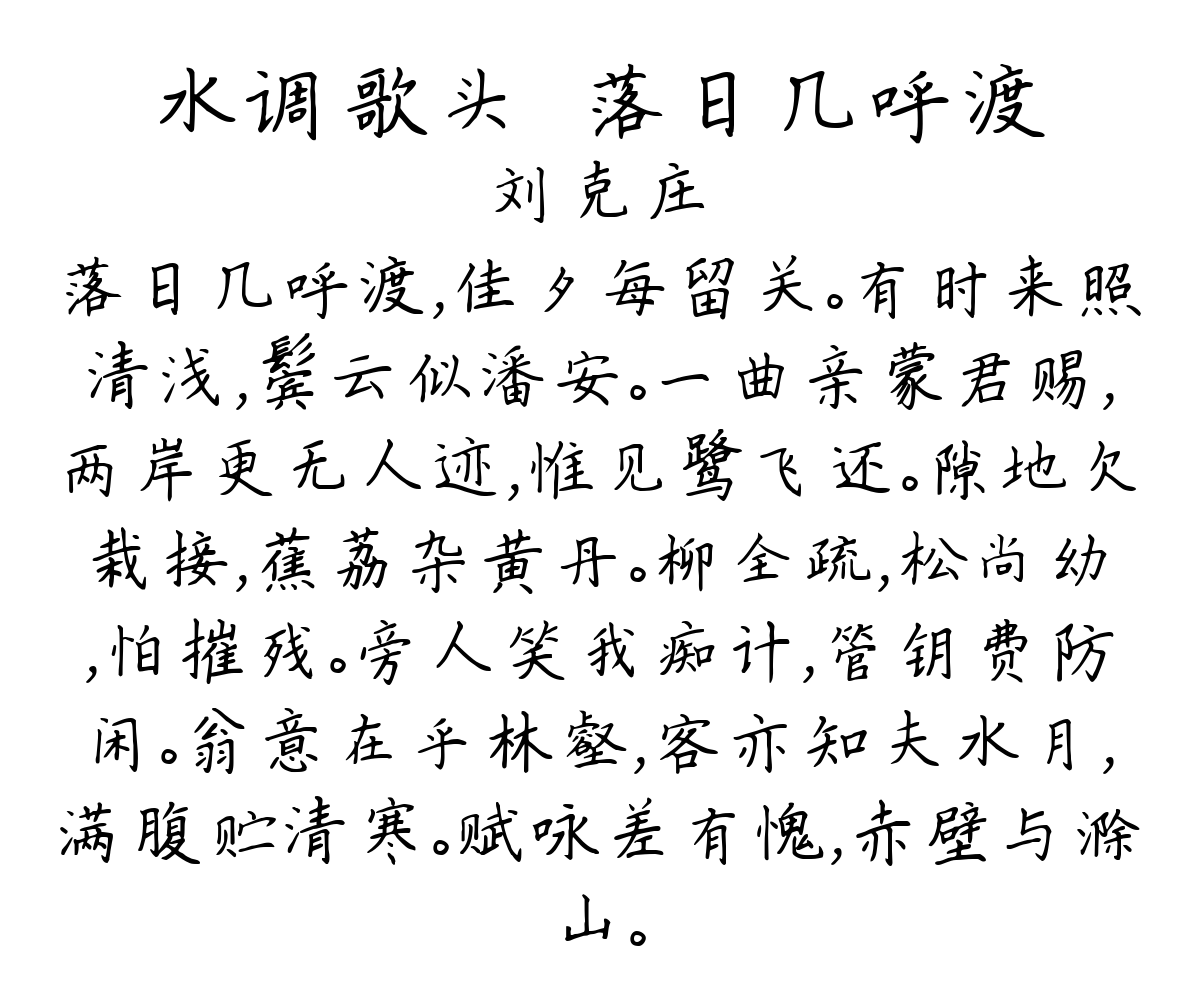 水调歌头 落日几呼渡
刘克庄
落日几呼渡,佳夕每留关。有时来照
清浅,鬓云似潘安。一曲亲蒙君赐,
两岸更无人迹,惟见鹭飞还。隙地欠
栽接,蕉荔杂黄丹。柳全疏,松尚幼
,怕摧残。旁人笑我痴计,管钥费防
闲。翁意在乎林壑,客亦知夫水月,
满腹贮清寒。赋咏差有愧,赤壁与滁
山。